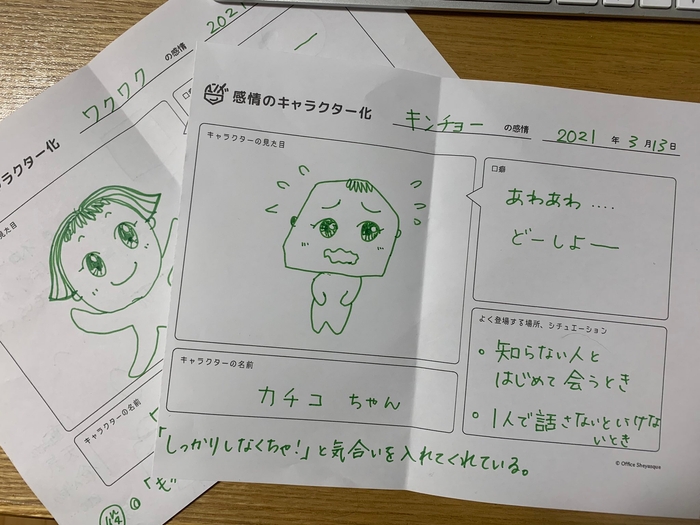 感情のキャラクター化
キンチョー の感情
2021 年 3 月 13 日
キャラクターの見た目
口癖
あわあわ ‥‥
どーしよ―
よく登場する場所、シチュエーション
。知らない人と
はじめて会うとき
。1人で話さないといけな
いとき
キャラクターの名前
カチコ ちゃん
「しっかりしなくちゃ!」と気合いを入れてくれている。
© Office Sheyasgus
ワクワク の感情
2021
ラクター化
見た目
口癖
キャラクターの名前